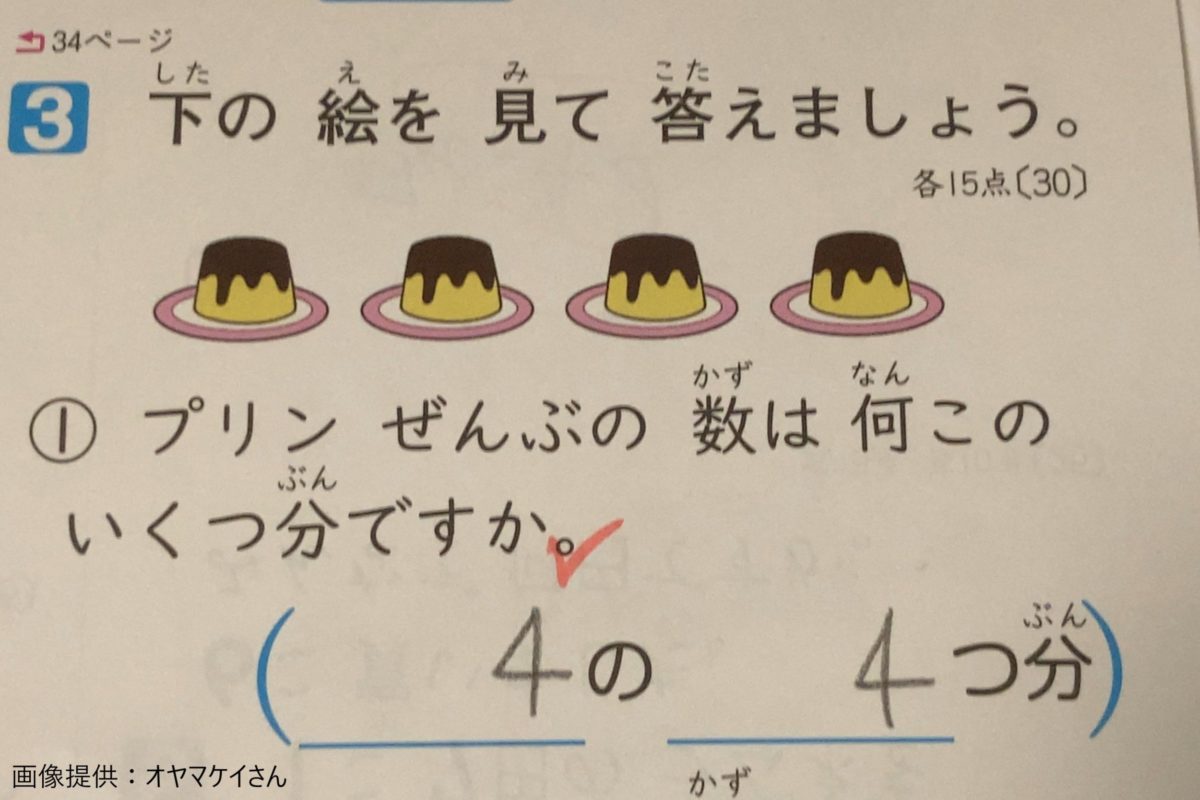 34ページ
3 下の 絵を 見て 答えましょう。
した え み こた
各15点〔30〕
① プリン ぜんぶの 数は 何この
かず なん
いくつ分ですか。
ぶん
( 4の 4つ分)
ぶん
かず
画像提供：オヤマケイさん